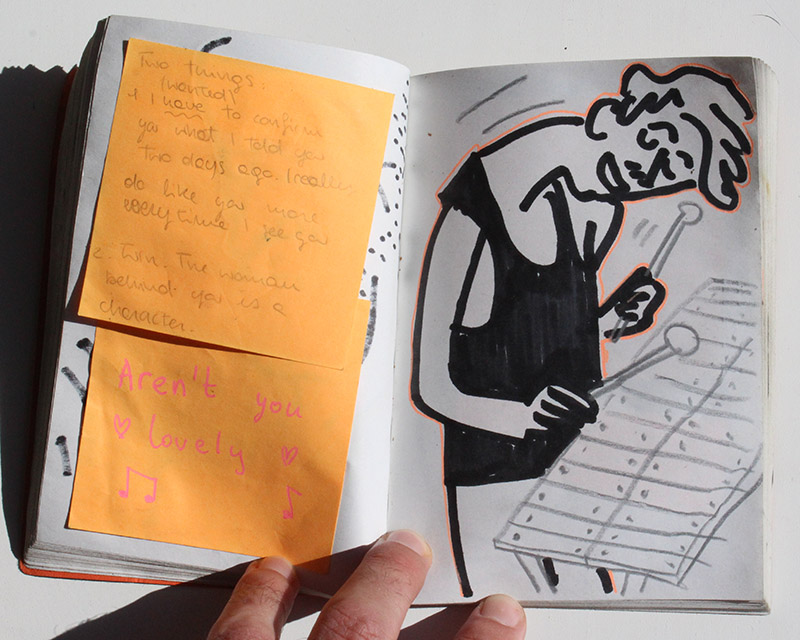 Two things:
I wanted!
1 I have to confirm
you what I told you
two days ago. I really
do like you more
everytime I see you
2. Turn. The woman
behind you is a
character.
Aren't you
♡ lovely ♡